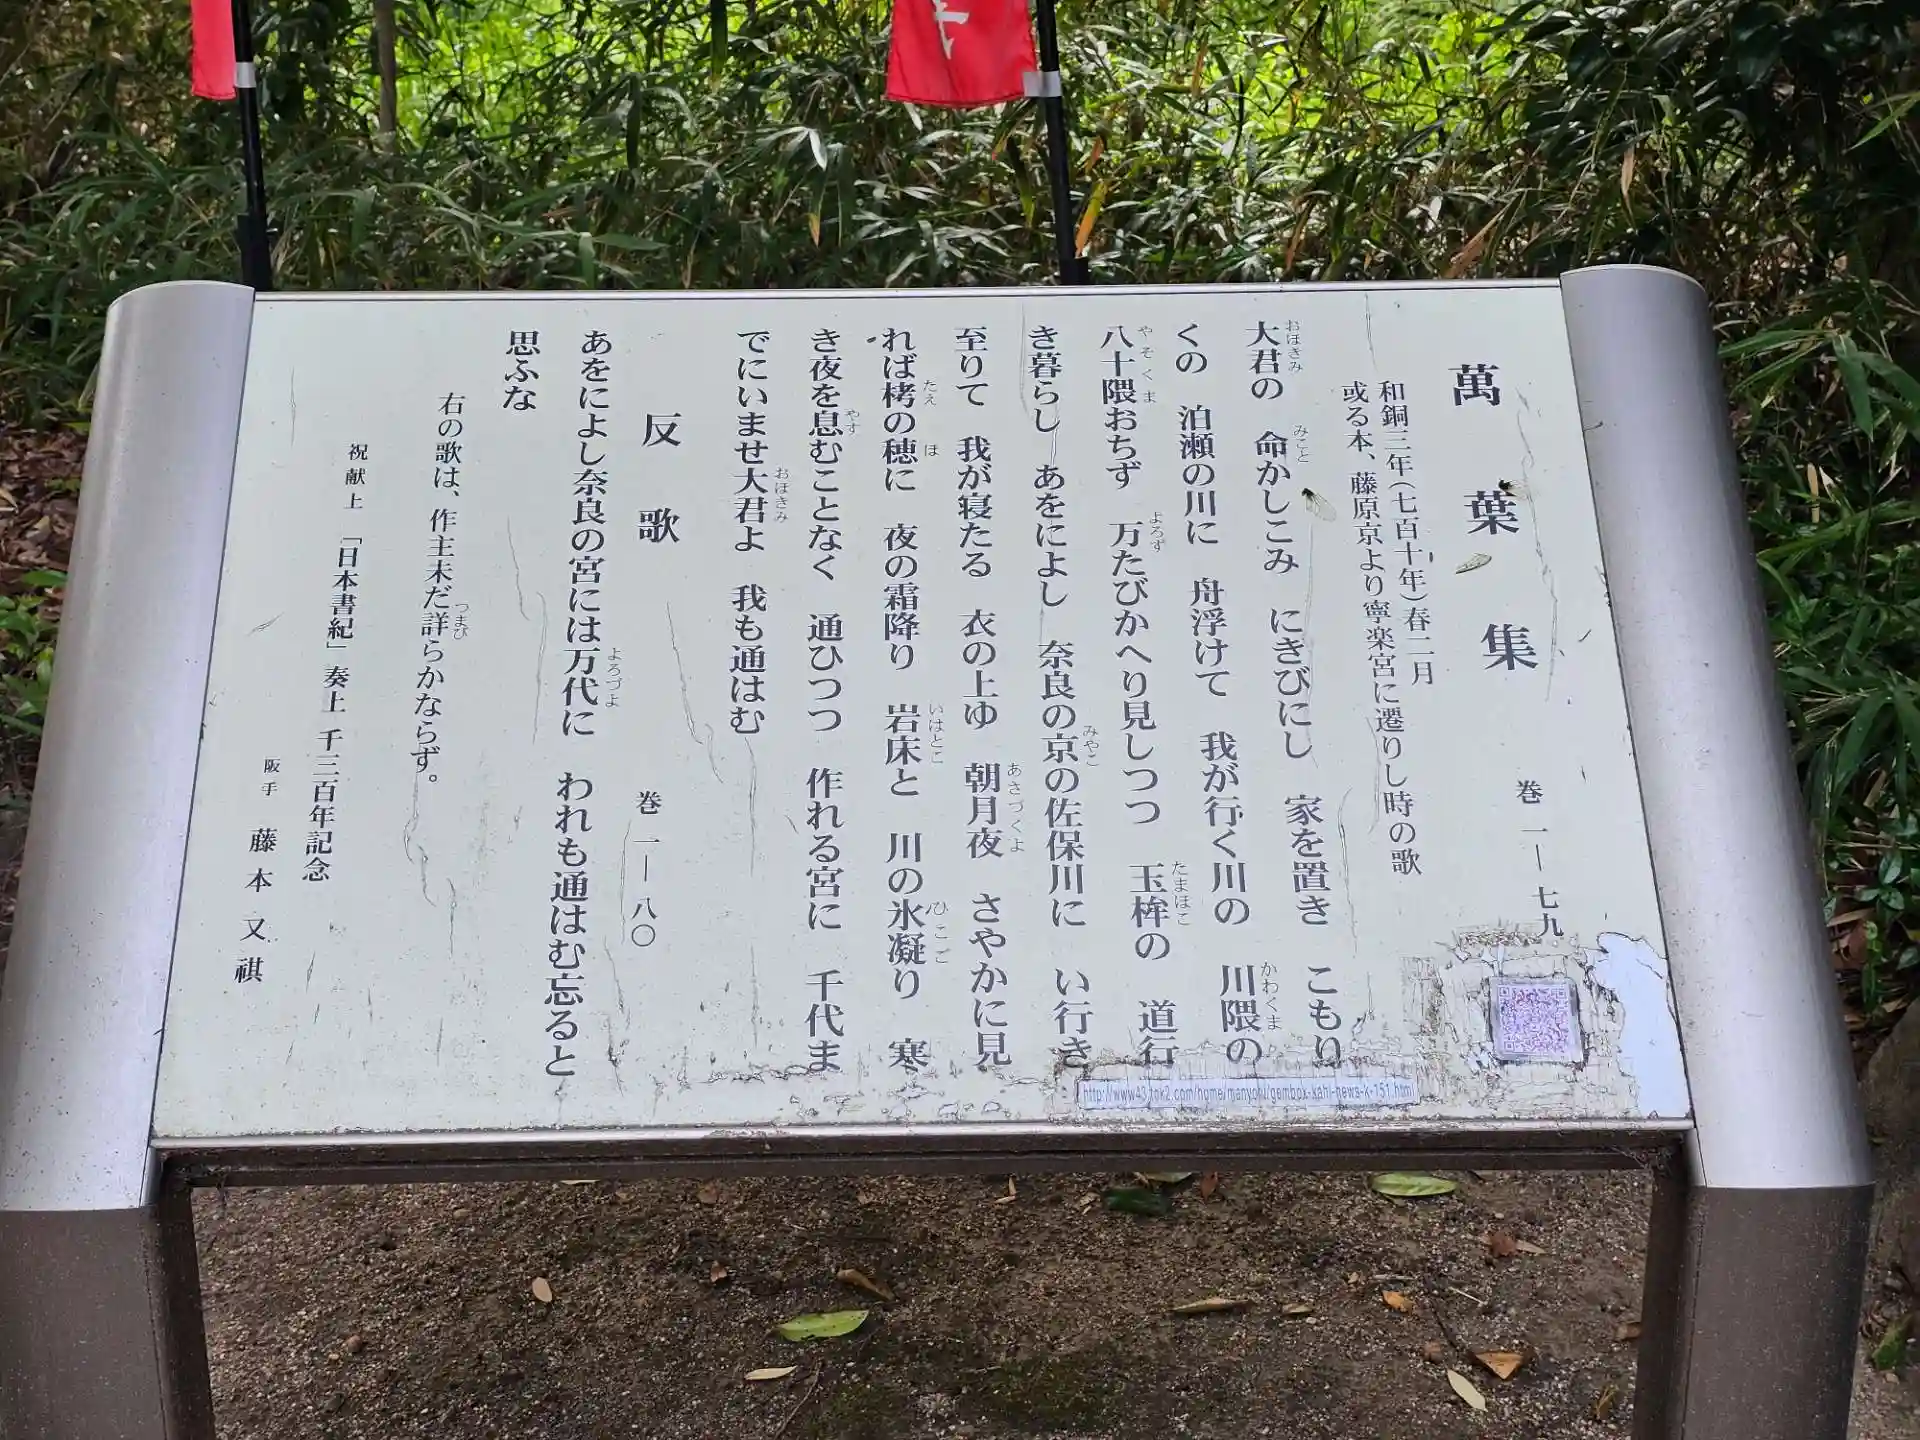 萬葉集 巻 一―七九
和銅三年(七百十年)春二月
或る本、藤原京より寧楽宮に遷りし時の歌
大君の 命かしこみ にきびにし 家を置き こもり
くの 泊瀬の川に 舟浮けて 我が行く川の 川隈の
八十隈おちず 万たびかへり見しつつ 玉桙の 道行
き暮らし あをによし 奈良の京の佐保川に い行き
至りて 我が寝たる 衣の上ゆ 朝月夜 さやかに見
れば栲の穂に 夜の霜降り 岩床と 川の氷凝り 寒
き夜を息むことなく 通ひつつ 作れる宮に 千代ま
でにいませ大君よ 我も通はむ
反歌 巻 一―八〇
あをによし奈良の宮には万代に われも通はむ忘ると
思ふな
右の歌は、作主未だ詳らかならず。
祝献上 「日本書紀」奏上 千三百年記念
阪手 藤本又祺
http://www43.tok2.com/home/manyoki/gembox-kahi-news-k-151.html